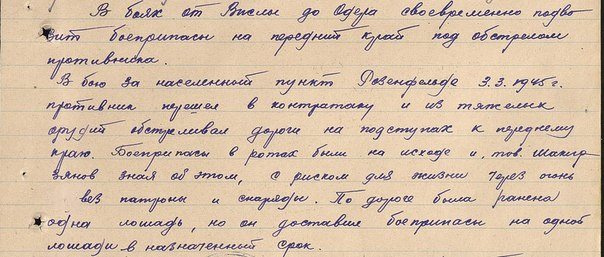 В боях от Вислы до Одера своевременно подво
зит боеприпасы на передний край под обстрелом
противника.
В бою за населенный пункт Розенфельде 3.3.1945 г.
противник перешел в контратаку и из тяжелых
орудий обстреливал дороги на подступах к переднему
краю. Боеприпасы в ротах были на исходе и, тов. Шакир
зянов зная об этом, с риском для жизни через огонь
вез патроны и снаряды. По дороге была ранена
одна лошадь, но он доставил боеприпасы на одной
лошади в назначенный срок.